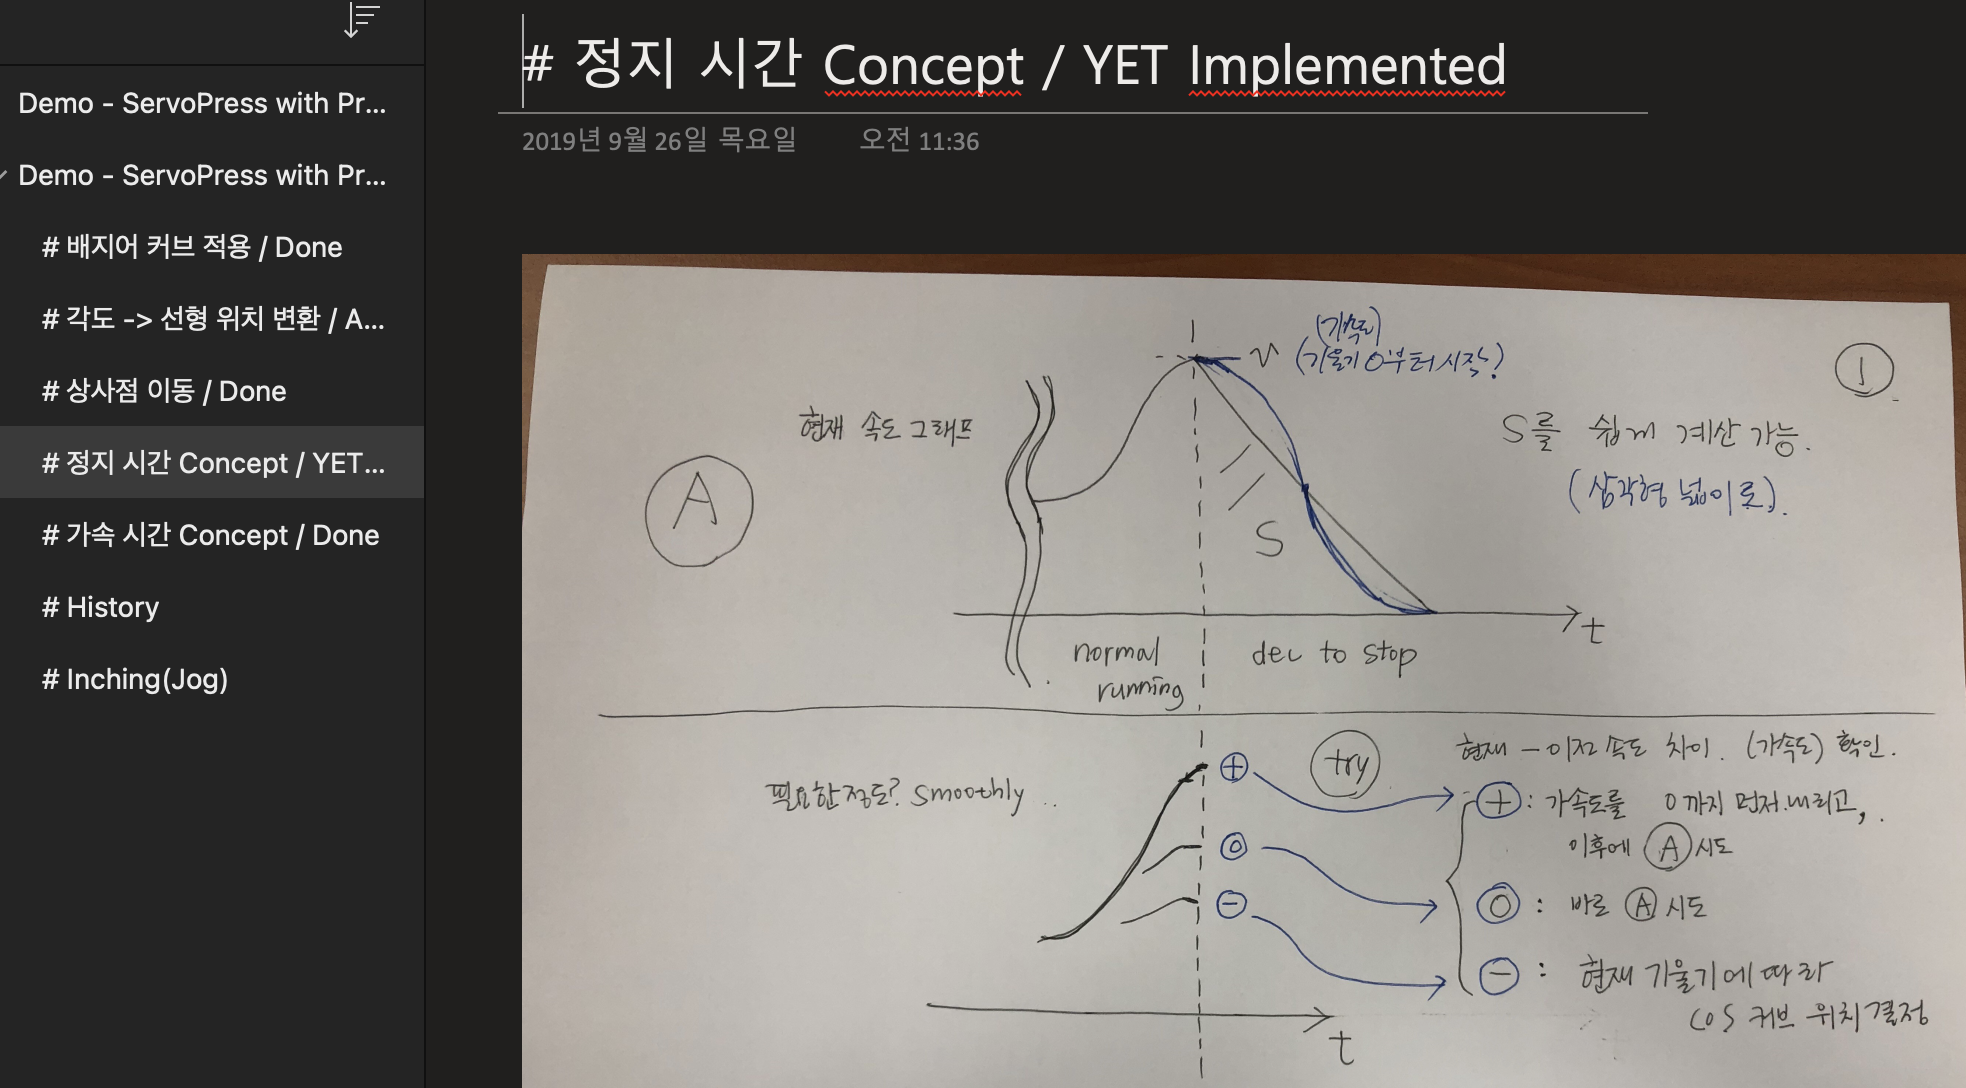 Demo - ServoPress with Pr...
Demo - ServoPress with Pr...
# 배지어 커브 적용 / Done
# 각도 -> 선형 위치 변환 / A...
# 상사점 이동 / Done
# 정지 시간 Concept / YET...
# 가속 시간 Concept / Done
# History
# Inching(Jog)
# 정지 시간 Concept / YET Implemented
2019년 9월 26일 목요일 오전 11:36
1
(가속도)
(기울기 0부터 시작?)
현재 속도 그래프
A
S를 쉽게 계산 가능.
(삼각형 넓이로).
S
t
normal
running
dec to stop
try
현재 - 이전 속도 차이. (가속도) 확인.
필요한정도? smoothly ..
+
+ : 가속도를 0까지 먼저 내리고,
이후에 A 시도
0
0 : 바로 A 시도
-
- : 현재 기울기에 따라
cos 커브 위치 결정
t